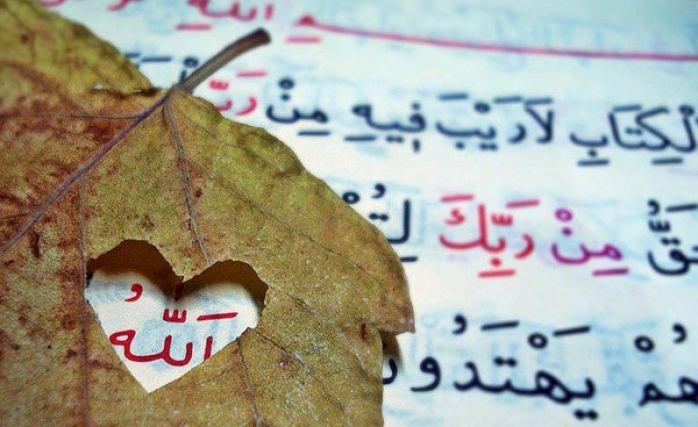 اللهِ
لْكِتَابِ لاَرَيْبَ فِيهِ مِنْ رَبِّ
حَقُّ مِنْ رَبِّكَ لِتُ
هُمْ يَهْتَدُو
اَللّٰهُ